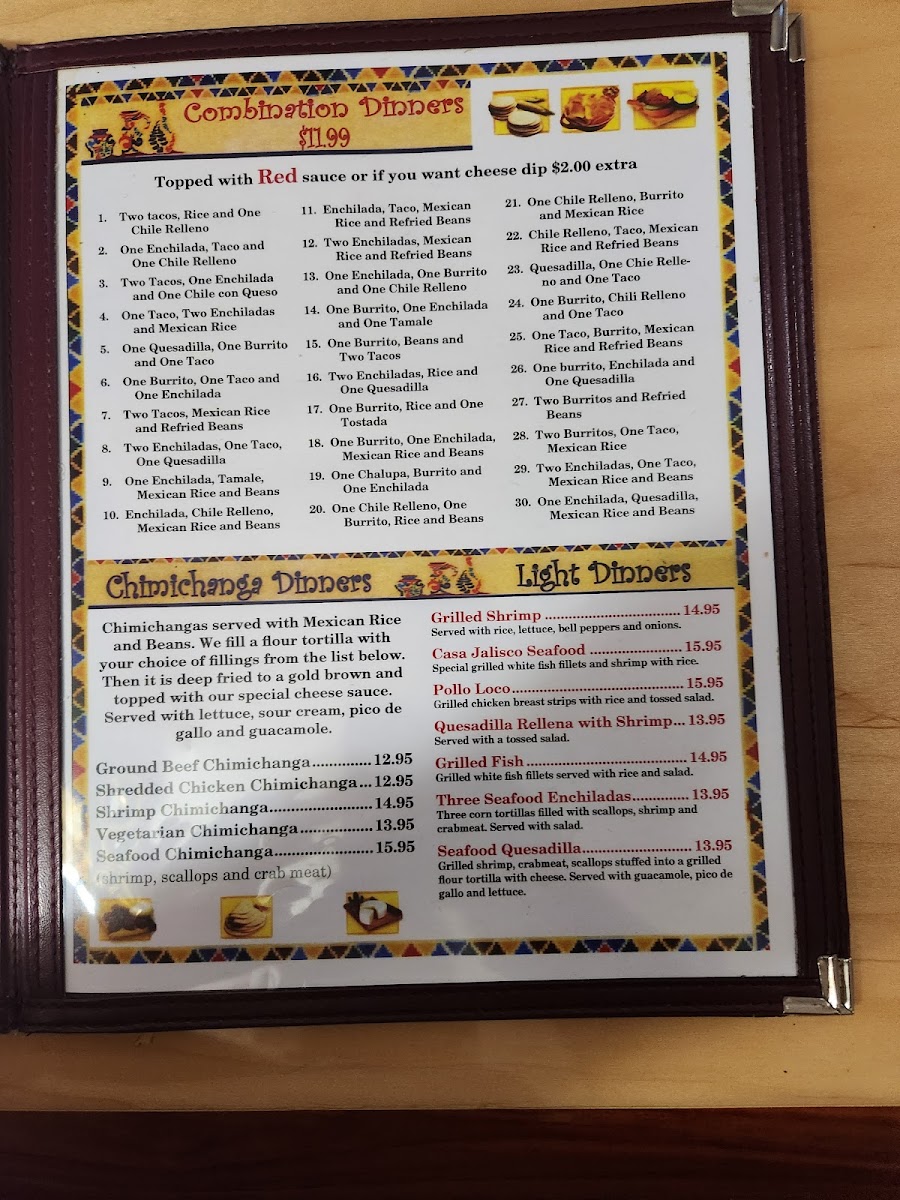 Combination Dinners
$11.99
Topped with Red sauce or if you want cheese dip $2.00 extra
1. Two tacos, Rice and One
Chile Relleno
2. One Enchilada, Taco and
One Chile Relleno
3. Two Tacos, One Enchilada
and One Chile con Queso
4. One Taco, Two Enchiladas
and Mexican Rice
5. One Quesadilla, One Burrito
and One Taco
6. One Burrito, One Taco and
One Enchilada
7. Two Tacos, Mexican Rice
and Refried Beans
8. Two Enchiladas, One Taco,
One Quesadilla
9. One Enchilada, Tamale,
Mexican Rice and Beans
10. Enchilada, Chile Relleno,
Mexican Rice and Beans
11. Enchilada, Taco, Mexican
Rice and Refried Beans
12. Two Enchiladas, Mexican
Rice and Refried Beans
13. One Enchilada, One Burrito
and One Chile Relleno
14. One Burrito, One Enchilada
and One Tamale
15. One Burrito, Beans and
Two Tacos
16. Two Enchiladas, Rice and
One Quesadilla
17. One Burrito, Rice and One
Tostada
18. One Burrito, One Enchilada,
Mexican Rice and Beans
19. One Chalupa, Burrito and
One Enchilada
20. One Chile Relleno, One
Burrito, Rice and Beans
21. One Chile Relleno, Burrito
and Mexican Rice
22. Chile Relleno, Taco, Mexican
Rice and Refried Beans
23. Quesadilla, One Chie Relle-
no and One Taco
24. One Burrito, Chili Relleno
and One Taco
25. One Taco, Burrito, Mexican
Rice and Refried Beans
26. One burrito, Enchilada and
One Quesadilla
27. Two Burritos and Refried
Beans
28. Two Burritos, One Taco,
Mexican Rice
29. Two Enchiladas, One Taco,
Mexican Rice and Beans
30. One Enchilada, Quesadilla,
Mexican Rice and Beans
Chimichanga Dinners
Chimichangas served with Mexican Rice
and Beans. We fill a flour tortilla with
your choice of fillings from the list below.
Then it is deep fried to a gold brown and
topped with our special cheese sauce.
Served with lettuce, sour cream, pico de
gallo and guacamole.
Ground Beef Chimichanga.............12.95
Shredded Chicken Chimichanga...12.95
Shrimp Chimichanga.......................14.95
Vegetarian Chimichanga................13.95
Seafood Chimichanga......................15.95
(shrimp, scallops and crab meat)
Light Dinners
Grilled Shrimp ................................. 14.95
Served with rice, lettuce, bell peppers and onions.
Casa Jalisco Seafood ...................... 15.95
Special grilled white fish fillets and shrimp with rice.
Pollo Loco.......................................... 15.95
Grilled chicken breast strips with rice and tossed salad.
Quesadilla Rellena with Shrimp... 13.95
Served with a tossed salad.
Grilled Fish ....................................... 14.95
Grilled white fish fillets served with rice and salad.
Three Seafood Enchiladas.............. 13.95
Three corn tortillas filled with scallops, shrimp and
crabmeat. Served with salad.
Seafood Quesadilla........................... 13.95
Grilled shrimp, crabmeat, scallops stuffed into a grilled
flour tortilla with cheese. Served with guacamole, pico de
gallo and lettuce.